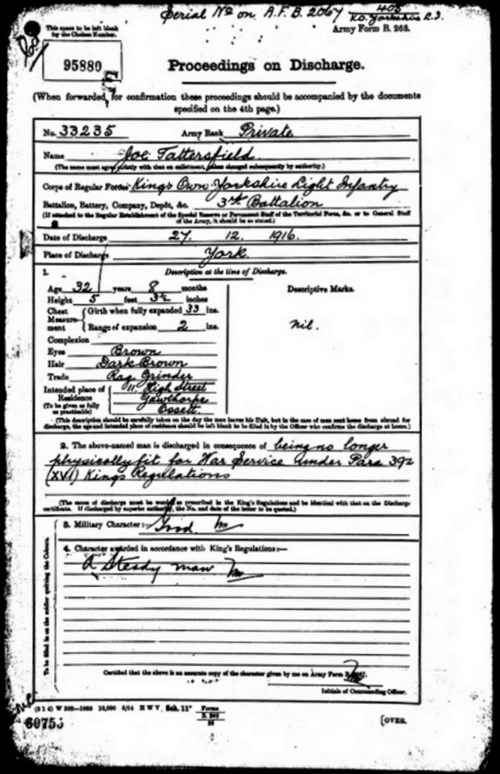 Serial No on A.F.B. 2067 405
K.O. Yorkshire L.I.
This space to be left blank
for the Chelsea Number.
Army Form B. 268.
95880
Proceedings on Discharge.
(When forwarded for confirmation these proceedings should be accompanied by the documents
specified on the 4th page.)
No. 33235 Army Rank Private
Name Joe Tattersfield.
(The name must agree strictly with that on enlistment, unless changed subsequently by authority.)
Corps of Regular Forces King's Own Yorkshire Light Infantry
Battalion, Battery, Company, Depôt, &c. 3rd Battalion
(If attached to the Regular Establishment of the Special Reserve or Permanent Staff of the Territorial Force, &c. or to General Staff
of the Army, it should be so stated.)
Date of Discharge 27. 12. 1916.
Place of Discharge York.
1. Description at the time of Discharge.
Age 32 years 8 months
Height 5 feet 3½ inches
Chest Measurement Girth when fully expanded 33 ins.
Range of expansion 2 ins.
Complexion
Eyes Brown
Hair Dark Brown
Trade Rag Grinder
Intended place of Residence 11, High Street
(To be given as fully as practicable) Gawthorpe
Ossett.
Descriptive Marks.
Nil.
(This description should be carefully taken on the day the man leaves his Unit, but in the case of men sent home from abroad for
discharge, the age and intended place of residence should be left blank to be filled in by the Officer who confirms the discharge at home.)
2. The above-named man is discharged in consequence of being no longer
physically fit for War Service under Para 392
(XVI) King's Regulations
(The cause of discharge must be worded as prescribed in the King's Regulations and be identical with that on the Discharge
certificate. If discharged by superior authority, the No. and date of the letter to be quoted.)
To be filled in on the soldier quitting the Colours.
3. Military Character:— Good
4. Character awarded in accordance with King's Regulations:—
A Steady man
Certified that the above is an accurate copy of the character given by me on Army Form
Initials of Commanding Officer.
Forms
B. 268
60755
[OVER.